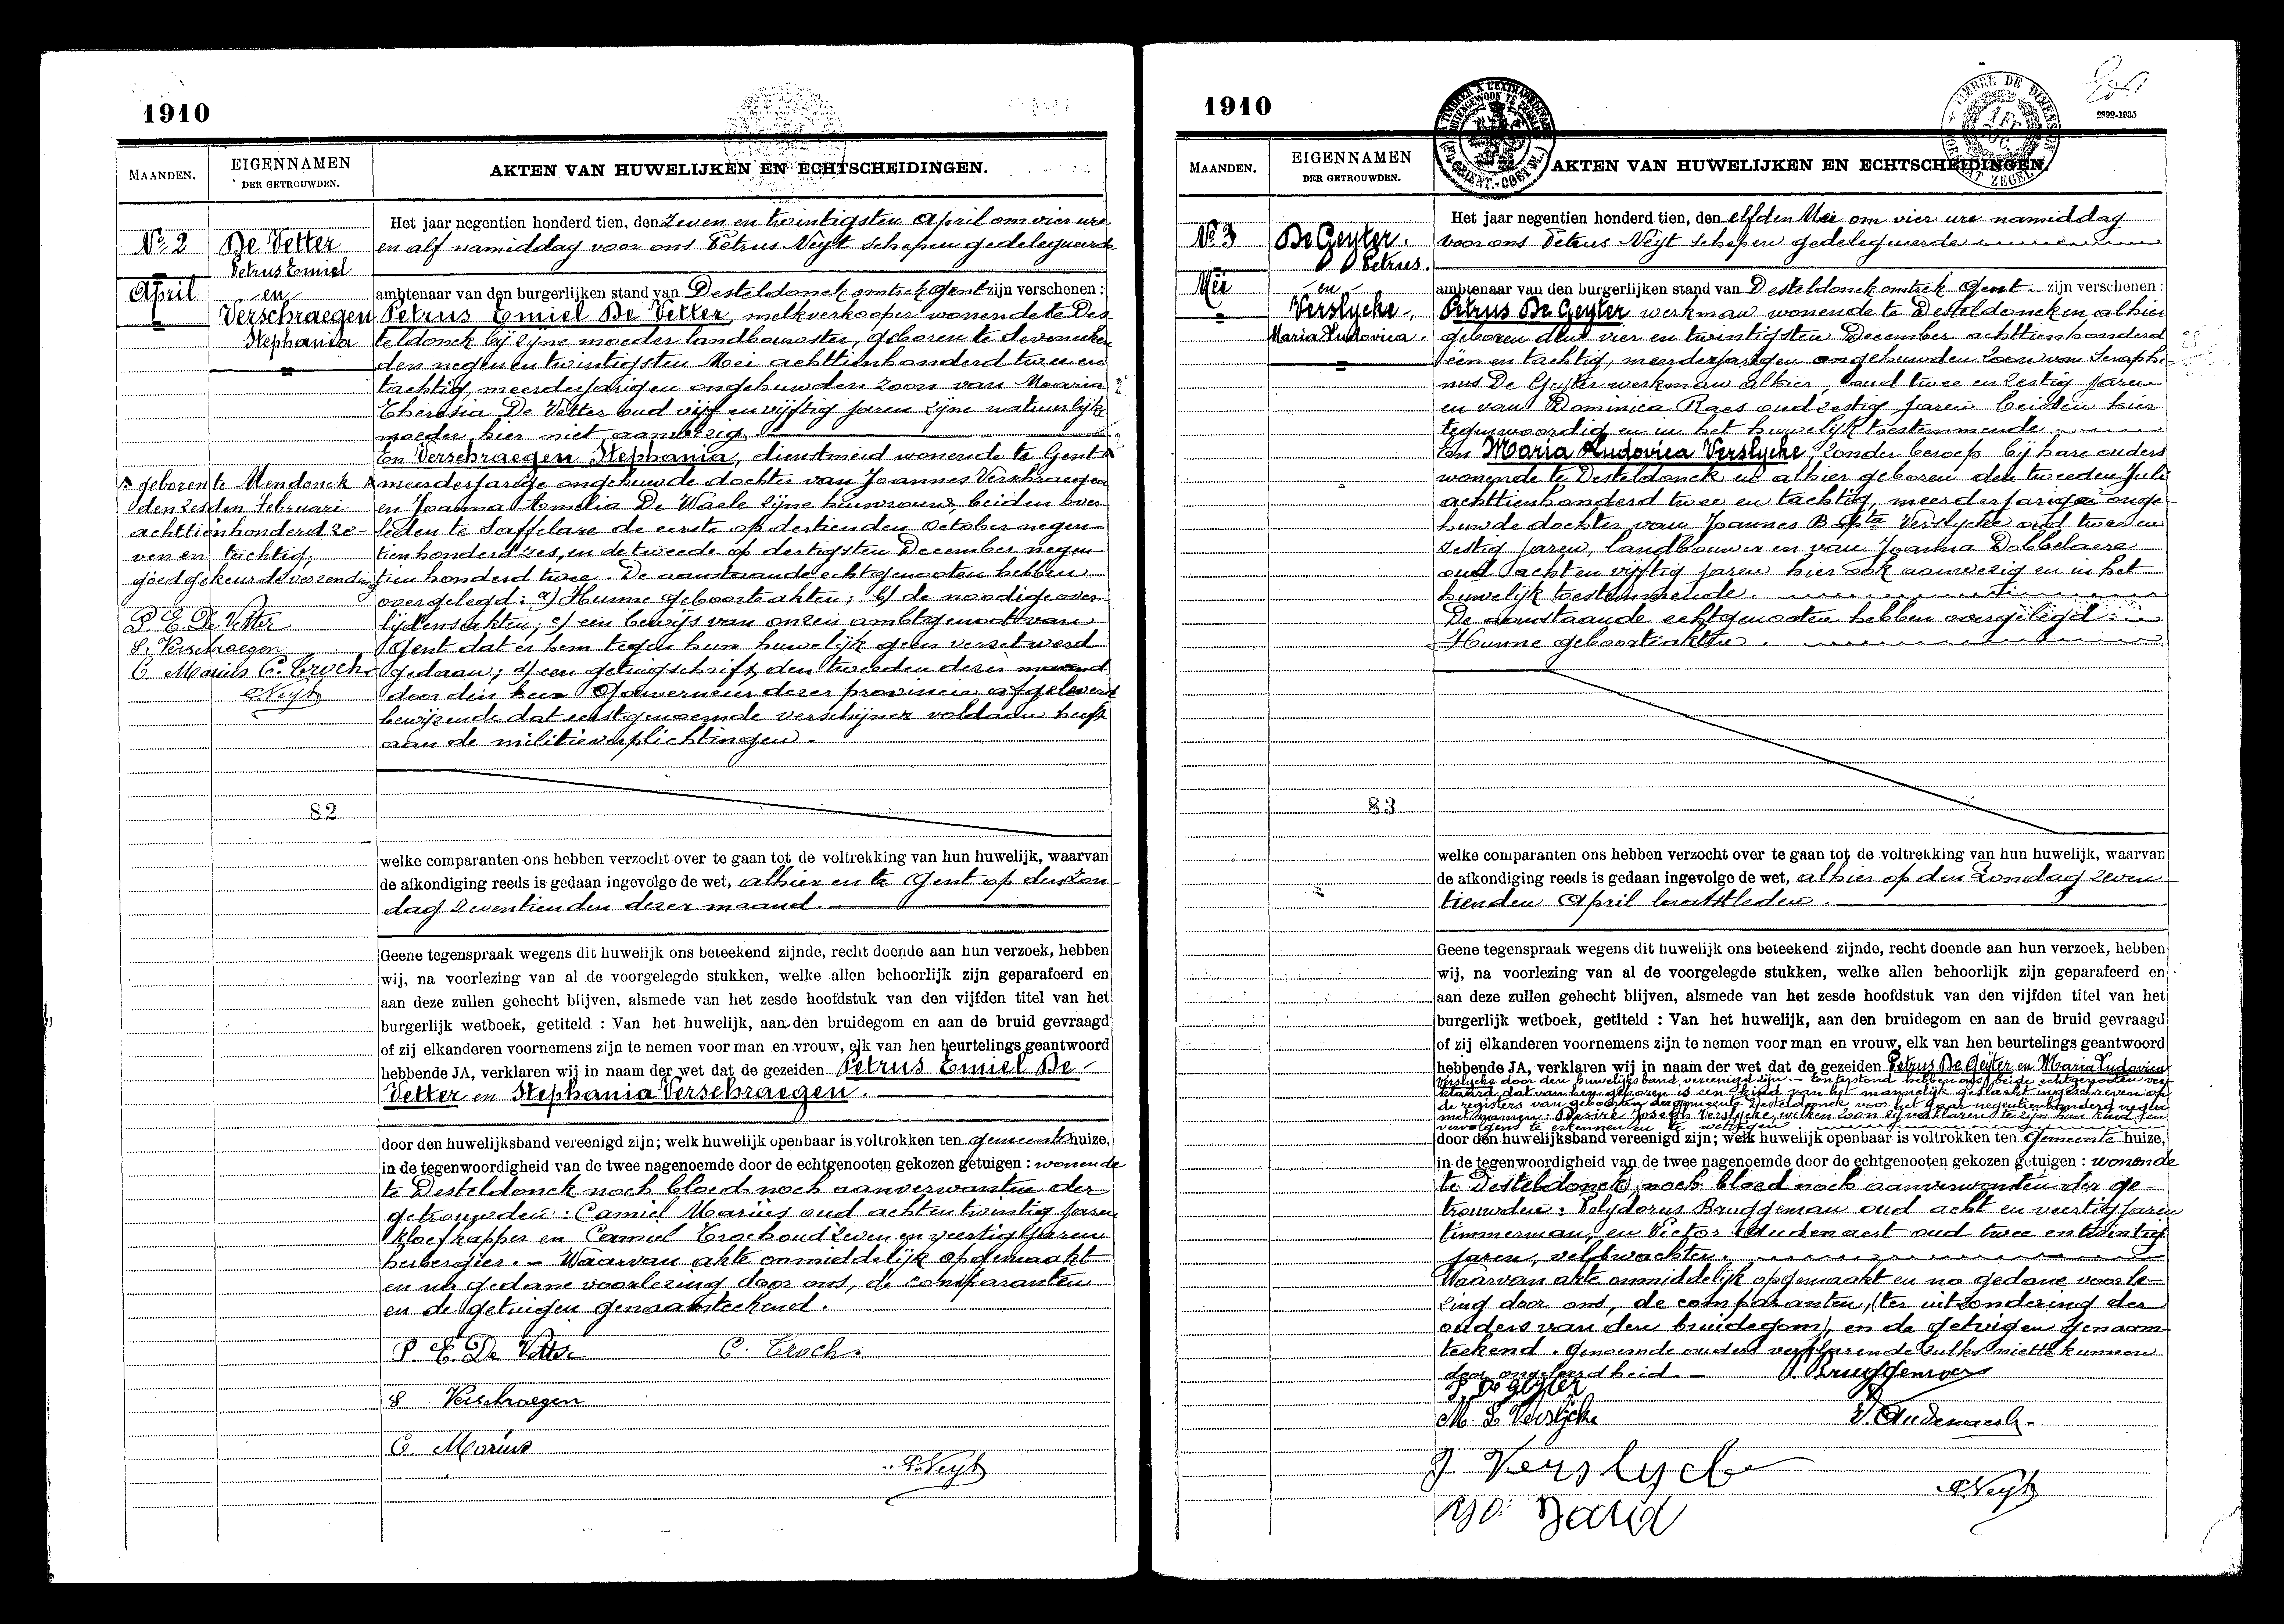 1910
MAANDEN.
EIGENNAMEN
DER GETROUWDEN.
AKTEN VAN HUWELIJKEN EN ECHTSCHEIDINGEN.
Nº 2
De Vetter
Petrus Emiel
April
en
Verschraegen
Stephania
Het jaar negentien honderd tien, den zeven en twintigsten April om vier ure
en alf namiddag voor ons Petrus Neyt schepen gedelegueerde
ambtenaar van den burgerlijken stand van Desteldonck omtrek Gent zijn verschenen :
Petrus Emiel De Vetter, melkverkooper wonende te Des
teldonck bij zijne moeder landbouwster, geboren te Seveneecken
den negen en twintigsten Mei achttienhonderd twee en
tachtig, meerderjarigen ongehuwden zoon van Maaria
Theresia De Vetter oud vijf en vijftig jaren zijne natuurlijke
moeder hier niet aanwezig
En Verschraegen Stephania, dienstmeid wonende te Gent
meerderjarige ongehuwde dochter van Joannes Verschraegen
en Joanna Amelia De Waele zijne huisvrouw, beiden over
leden te Saffelare de eerste op dertienden October negen-
tienhonderd zes, en de tweede op dertigsten December negen-
tien honderd twee. De aanstaande echtgenooten hebben
overgelegd: a) Hunne geboorteakten; b) de noodige over
lijdensakten; c) een bewijs van onzen ambtgenoot van
Gent dat er hem tegen hun huwelijk geen verzet werd
gedaan; d) een getuigschrift den tweeden dezer maand
door den heer Gouverneur dezer provincie afgeleverd
bewijzende dat eerstgenoemde verschijner voldaan heeft
aan de militieverplichtingen.
geboren te Mendonck
den zesden Februari
achttienhonderd ze-
ven en tachtig,
goedgekeurde verzending
P. E. De Vetter
S. Verschraegen
C. Marius C. Troch
P. Neyt
82
welke comparanten ons hebben verzocht over te gaan tot de voltrekking van hun huwelijk, waarvan
de afkondiging reeds is gedaan ingevolge de wet, alhier en te Gent op den zon
dag zeventienden dezer maand.
Geene tegenspraak wegens dit huwelijk ons beteekend zijnde, recht doende aan hun verzoek, hebben
wij, na voorlezing van al de voorgelegde stukken, welke allen behoorlijk zijn geparafeerd en
aan deze zullen gehecht blijven, alsmede van het zesde hoofdstuk van den vijfden titel van het
burgerlijk wetboek, getiteld : Van het huwelijk, aan den bruidegom en aan de bruid gevraagd
of zij elkanderen voornemens zijn te nemen voor man en vrouw, elk van hen beurtelings geantwoord
hebbende JA, verklaren wij in naam der wet dat de gezeiden Petrus Emiel De
Vetter en Stephania Verschraegen.
door den huwelijksband vereenigd zijn; welk huwelijk openbaar is voltrokken ten gemeentehuize,
in de tegenwoordigheid van de twee nagenoemde door de echtgenooten gekozen getuigen : wonende
te Desteldonck noch bloed noch aanverwanten der
getrouwden : Camiel Marius oud achtentwintig jaren
kloefkapper en Camiel Troch oud zeven en veertig jaren
herbergier. – Waarvan akte onmiddelijk opgemaakt
en na gedane voorlezing door ons, de comparanten
en de getuigen genaamteekend.
P. E. De Vetter
C. Troch.
S Verschraegen
C. Marius
P. Neyt
1910
2892-1935
MAANDEN.
EIGENNAMEN
DER GETROUWDEN.
AKTEN VAN HUWELIJKEN EN ECHTSCHEIDINGEN.
Nº 3
De Geyter.
Petrus.
Mei
en
Verslycke.
Maria Ludovica.
Het jaar negentien honderd tien, den elfden Mei om vier ure namiddag
voor ons Petrus Neyt schepen gedelegueerde
ambtenaar van den burgerlijken stand van Desteldonck omtrek Gent zijn verschenen :
Petrus De Geyter werkman wonende te Desteldonck en alhier
geboren den vier en twintigsten December achttienhonderd
een en tachtig, meerderjarigen ongehuwden zoon van Seraphi-
nus De Geyter werkman alhier oud twee en zestig jaren
en van Dominica Raes oud zestig jaren beiden hier
tegenwoordig en in het huwelijk toestemmende
En Maria Ludovica Verslycke, zonder beroep bij hare ouders
wonende te Desteldonck en alhier geboren den tweeden Juli
achttienhonderd twee en tachtig, meerderjarige onge-
huwde dochter van Joannes Bapta Verslycke oud twee en
zestig jaren, landbouwer en van Joanna Dobbelaere
oud acht en vijftig jaren hier ook aanwezig en in het
huwelijk toestemmende.
De aanstaande echtgenooten hebben overgelegd :
Hunne geboorteakten.
83
welke comparanten ons hebben verzocht over te gaan tot de voltrekking van hun huwelijk, waarvan
de afkondiging reeds is gedaan ingevolge de wet, alhier op den Zondag zeven
tienden April laatstleden.
Geene tegenspraak wegens dit huwelijk ons beteekend zijnde, recht doende aan hun verzoek, hebben
wij, na voorlezing van al de voorgelegde stukken, welke allen behoorlijk zijn geparafeerd en
aan deze zullen gehecht blijven, alsmede van het zesde hoofdstuk van den vijfden titel van het
burgerlijk wetboek, getiteld : Van het huwelijk, aan den bruidegom en aan de bruid gevraagd
of zij elkanderen voornemens zijn te nemen voor man en vrouw, elk van hen beurtelings geantwoord
hebbende JA, verklaren wij in naam der wet dat de gezeiden Petrus De Geyter en Maria Ludovica
Verslycke door den huwelijksband vereenigd zijn. – En terstond hebben ons beide echtgenooten ver-
klaard dat van hen geboren is een kind van het mannelijk geslacht ingeschreven op
de registers van geboorten der gemeente Desteldonck voor het jaar negentienhonderd negen
met namen: Desiré Joseph Verslycke, welken zoon zij verklaren te zijn hun kind en
vervolgens te erkennen en te wettigen
door den huwelijksband vereenigd zijn; welk huwelijk openbaar is voltrokken ten Gemeente huize,
in de tegenwoordigheid van de twee nagenoemde door de echtgenooten gekozen getuigen : wonende
te Desteldonck, noch bloed noch aanverwanten der ge-
trouwden : Polydorus Bruggeman oud acht en veertig jaren
timmerman, en Victor Audenaert oud twee en twintig
jaren, veldwachter.
Waarvan akte onmiddelijk opgemaakt en na gedane voorle-
zing door ons, de comparanten, (ter uitzondering der
ouders van den bruidegom), en de getuigen genaam-
teekend. Genoemde ouders verklarende zulks niet te kunnen
door ongeleerdheid. –
P. Bruggeman
P. De Geyter
M. L Verslycke
V. Audenaert.
J Verslycke
P. Neyt